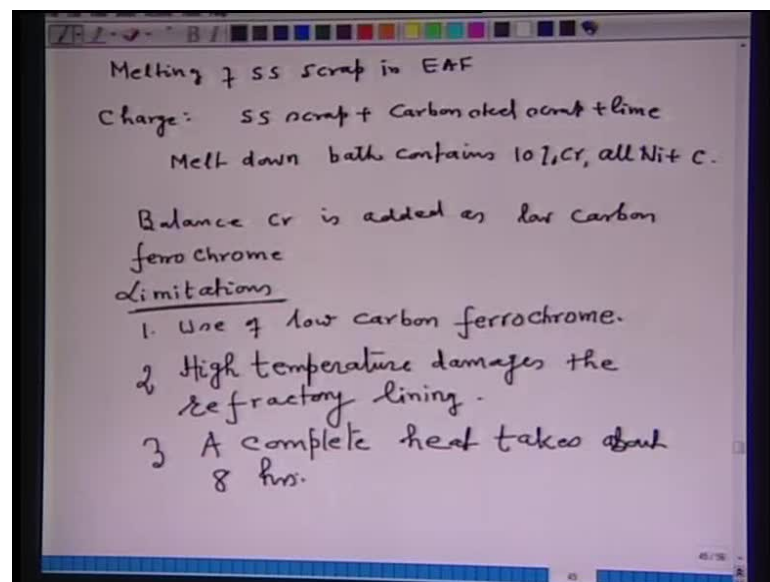 Melting of SS scrap in EAF
Charge: SS scrap + Carbon steel scrap + lime
Melt down bath contains 10%Cr, all Ni + C.
Balance Cr is added as low carbon
ferrochrome
Limitations
1. Use of low carbon ferrochrome.
2 High temperature damages the
refractory lining.
3 A complete heat takes about
8 hrs.
45